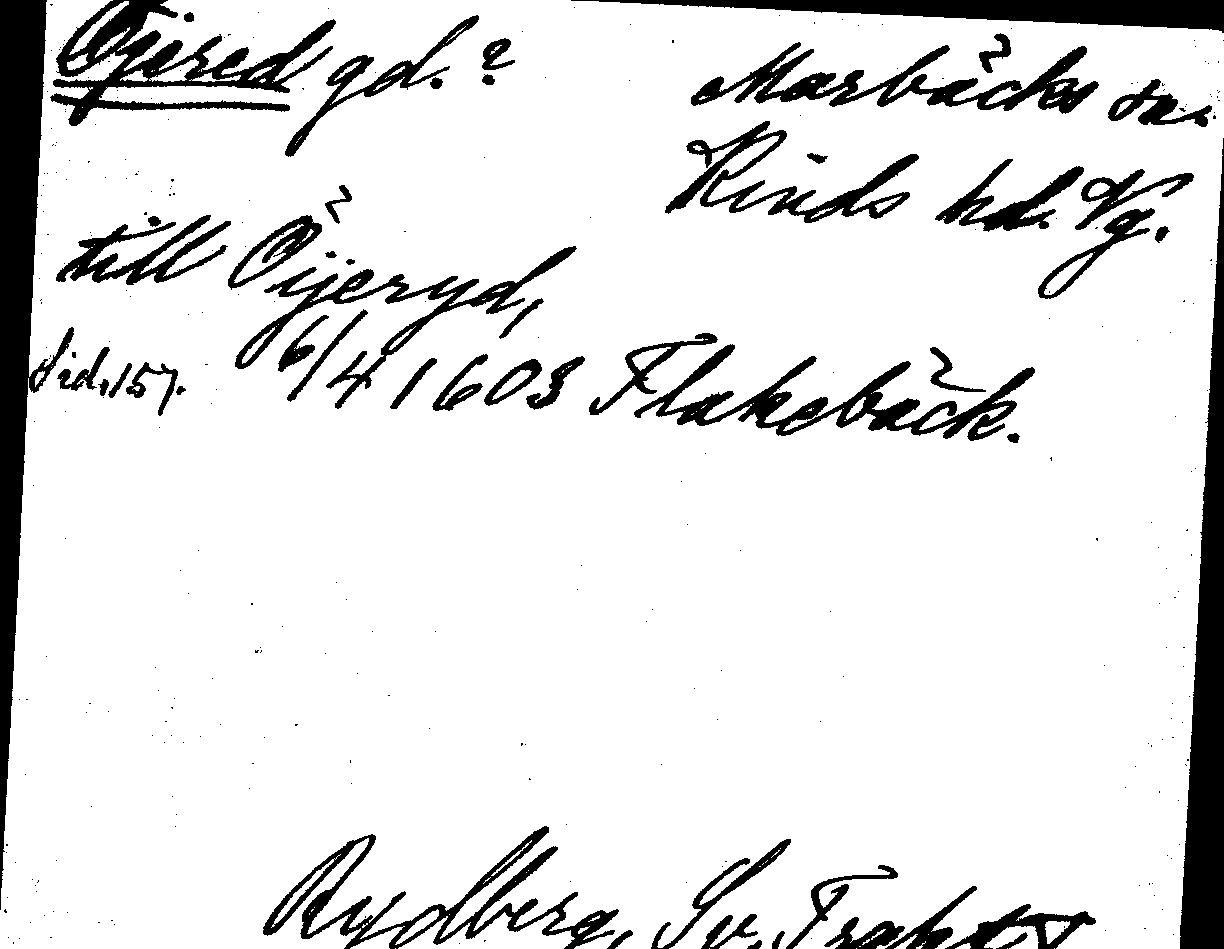 Öjered gd.?
Marbäcks sn.
Kinds hd. Vg.
till Öijeryd,
sid. 157. 6/4 1603 Flakebäck.
Rydberg, Sv. Trakt